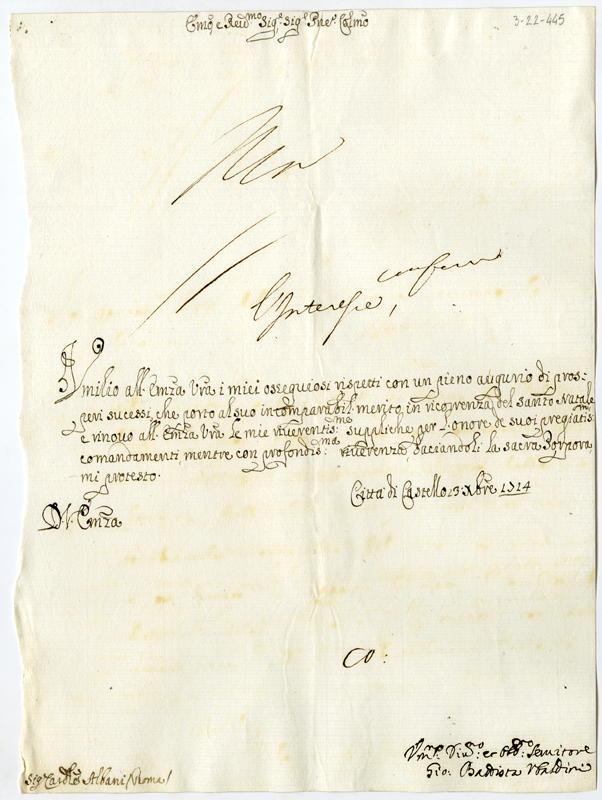 Emo, e Reu:mo Sig:e Sig:e Pne: Colmo
3-22-445
Umilio all' Emza Vra i miei ossequiosi rispetti con un pieno augurio di pros:
peri sucessi, che porto al suo incomparabil merito in ricorrenza del santo Natale
e rinouo all' Emza Vra le mie riuerentis:me suppliche per l'onore de suoi pregiatis:mi
comandamenti, mentre con profondis:ma riuerenza, baciandoli la sacra Porpora,
mi protesto.
Città di Castello 13 Xbre 1714
D. V. Emza
CO:
Vm:o Diu:o et Obb:o Seruitore
Gio: Battista Vbaldini
Sig: Cardle Albani / Roma /